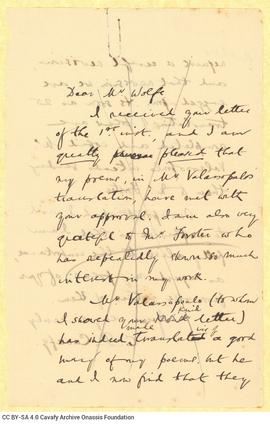 Dear Mr Wolfe
I received your letter
of the 1st inst. and I am
greatly pleased that
my poems, in Mr Valassopoulo
translation, have met with
your approval. I am also very
grateful to Mr Forster who
has repeatedly shown so much
interest in my work.
Mr Valassopoulo (to whom
I showed your kind letter)
has indeed made translations of a good
many of my poems. but he
and I now find that they
CC BY-SA 4.0 Cavafy Archive Onassis Foundation